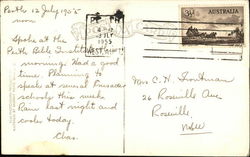 Perth 12 July 1955
noon
Spoke at the
Perth Bible Institute this
morning. Had a good
time. Planning to
speak at several
schools this week.
Rain last night and
cooler today.
Chas.
1955
3½d
AUSTRALIA
Mrs C. H.
26 Roseville Ave
Roseville
NSW